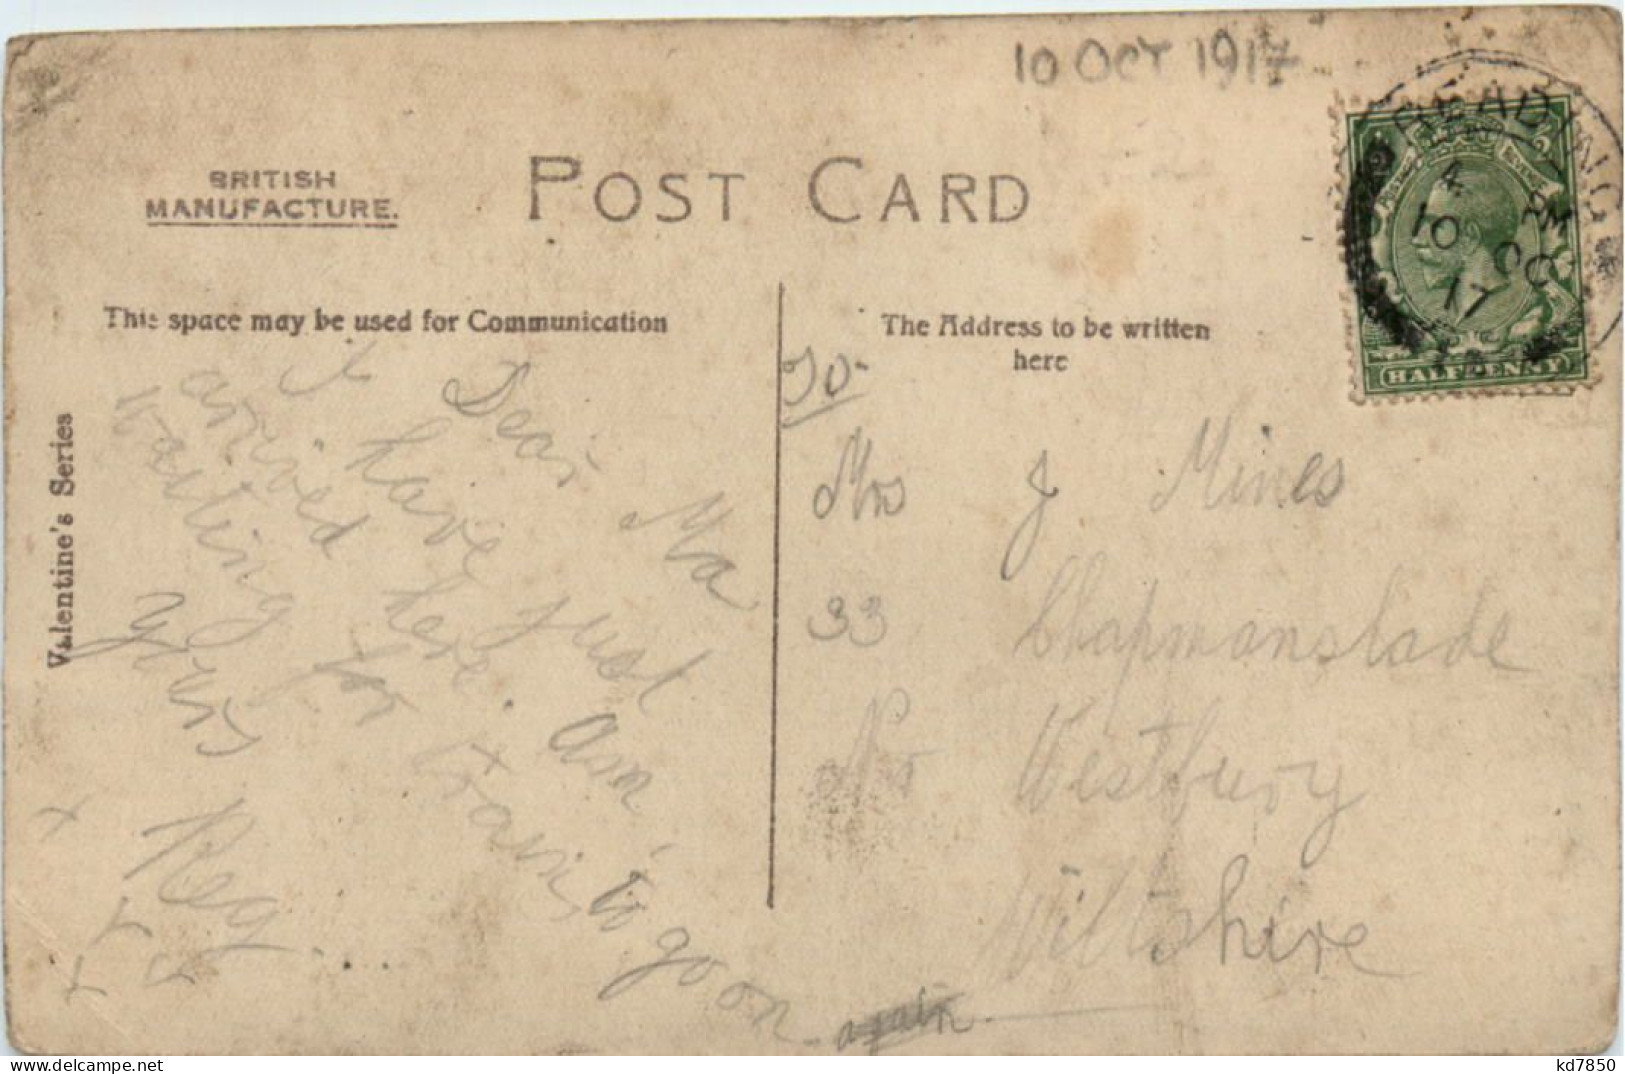 10 OCT 1917
READING
4 PM
10 OC
17
HALFPENNY
BRITISH
MANUFACTURE.
POST CARD
This space may be used for Communication
The Address to be written
here
Valentine's Series
Dear Ma
I have just
arrived here. am
waiting for train to go on again
yours
Reg ....
x
To
Mrs J Mines
33 Chapmanslade
Nr Westbury
Wiltshire
kd7850